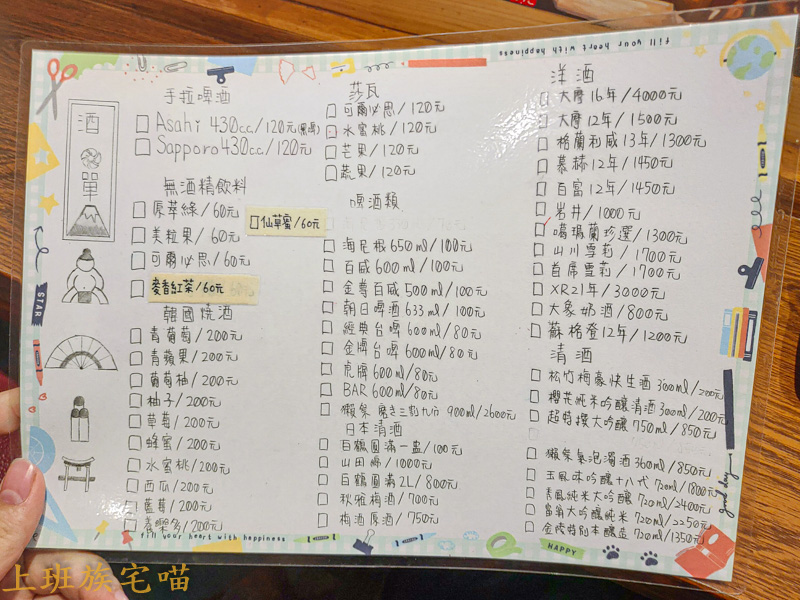 fill your heart with happiness
酒單
手拉啤酒
Asahi 430cc/120元
Sapporo 430cc/120元
無酒精飲料
原萃綠/60元
仙草蜜/60元
美粒果/60元
可爾必思/60元
麥香紅茶/60元
韓國燒酒
青葡萄/200元
青蘋果/200元
葡萄柚/200元
柚子/200元
草莓/200元
蜂蜜/200元
水蜜桃/200元
西瓜/200元
藍莓/200元
養樂多/200元
莎瓦
可爾必思/120元
水蜜桃/120元
芒果/120元
蔬果/120元
啤酒類
海尼根 650ml/100元
百威 600ml/100元
金尊百威 500ml/100元
朝日啤酒 633ml/100元
經典台啤 600ml/80元
金牌台啤 600ml/80元
虎牌 600ml/80元
BAR 600ml/80元
獺祭 磨き三割九分 900ml/2600元
日本清酒
百鶴圓滿一盅/100元
山田錦/1000元
百鶴圓滿2L/800元
秋雅梅酒/700元
梅酒原酒/750元
洋酒
大摩16年/4000元
大摩12年/1500元
格蘭利威13年/1300元
慕赫12年/1450元
百富12年/1450元
岩井/1000元
噶瑪蘭珍選/1300元
山川雪莉/1700元
首席雪莉/1700元
XR21年/3000元
大象奶酒/800元
蘇格登12年/1200元
清酒
松竹梅豪快生酒 300ml/200元
櫻花純米吟釀清酒 300ml/200元
超特撰大吟釀 750ml/850元
獺祭氣泡濁酒 360ml/850元
玉風味吟釀十八代 720ml/1800元
秀鳳純米大吟釀 720ml/2400元
富翁大吟釀純米 720ml/2250元
金陵特別本釀造 720ml/1350元
STAR
good day
HAPPY
fill your heart with happiness
上班族宅喵